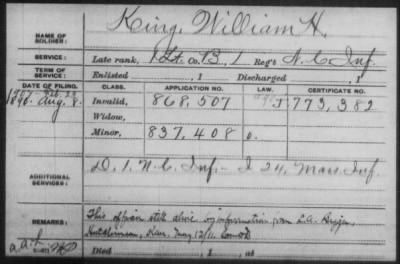 King, William H.
NAME OF SOLDIER:
SERVICE: Late rank, 1 Lt. Co. B, 1 Reg't N.C. Inf.
TERM OF SERVICE: Enlisted , 1 Discharged , 1
DATE OF FILING. CLASS. APPLICATION NO. LAW. CERTIFICATE NO.
Feb. 29
1896. Aug. 8. Invalid, 868,507 J. 773,382
Widow,
Minor, 837,408
ADDITIONAL SERVICES: D. 1. N.C. Inf. - I 24, Mass. Inf.
REMARKS: This officer still alive by information from
Hutchinson, Kan. May 12/11
Died , 1 , at